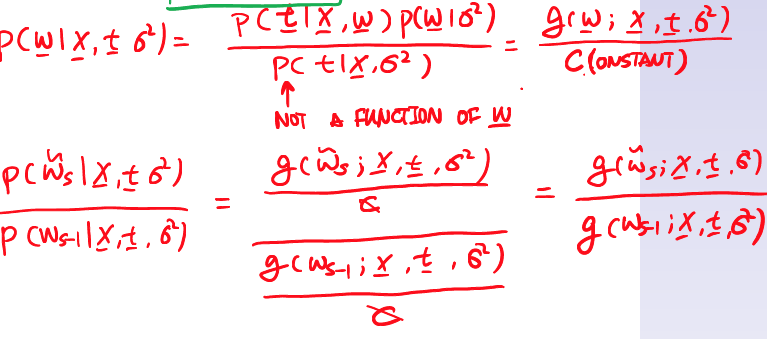 P(w|X, t σ²) = P(t|X, w) p(w|σ²) / P(t|X, σ²) = g(w; X, t, σ²) / C(ONSTANT)
↑
NOT A FUNCTION OF w
P(w̃s|X, t σ²) / P(ws-1|X, t, σ²) = g(w̃s; X, t, σ²)/C / g(ws-1; X, t, σ²)/C = g(w̃s; X, t, σ) / g(ws-1; X, t, σ²)